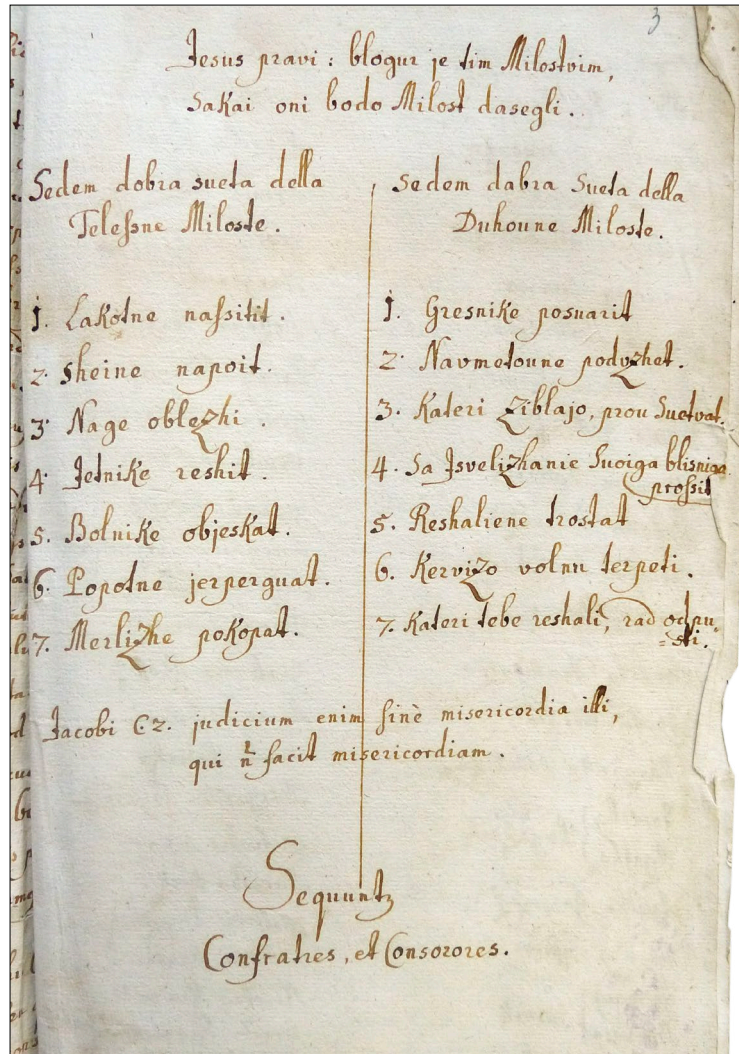 3
Jesus pravi: blogur je tim Milostvim,
Sakai oni bodo Milost dasegli.
Sedem dobra sueta della
Telessne Miloste.
1. Lakotne nassitit.
2. sheine napoit.
3. Nage oblezhi.
4. Jetnike reshit.
5. Bolnike objeskat.
6. Popotne jerperguat.
7. Merlizhe pokopat.
Sedem dabra Sueta della
Duhoune Miloste.
1. Gresnike posuarit
2. Navmetoune podvzhet.
3. Kateri ziblajo, prou Suetvat.
4. Sa Isvelizhanie Suoiga blisniga
prossit
5. Reshaliene trostat
6. Kervizo volnu terpeti.
7. Kateri tebe reshali, rad odpu-
=sti.
Jacobi C2. judicium enim sinè misericordia illi,
qui n̄ facit misericordiam.
Sequuntz
Confratres, et Consorores.